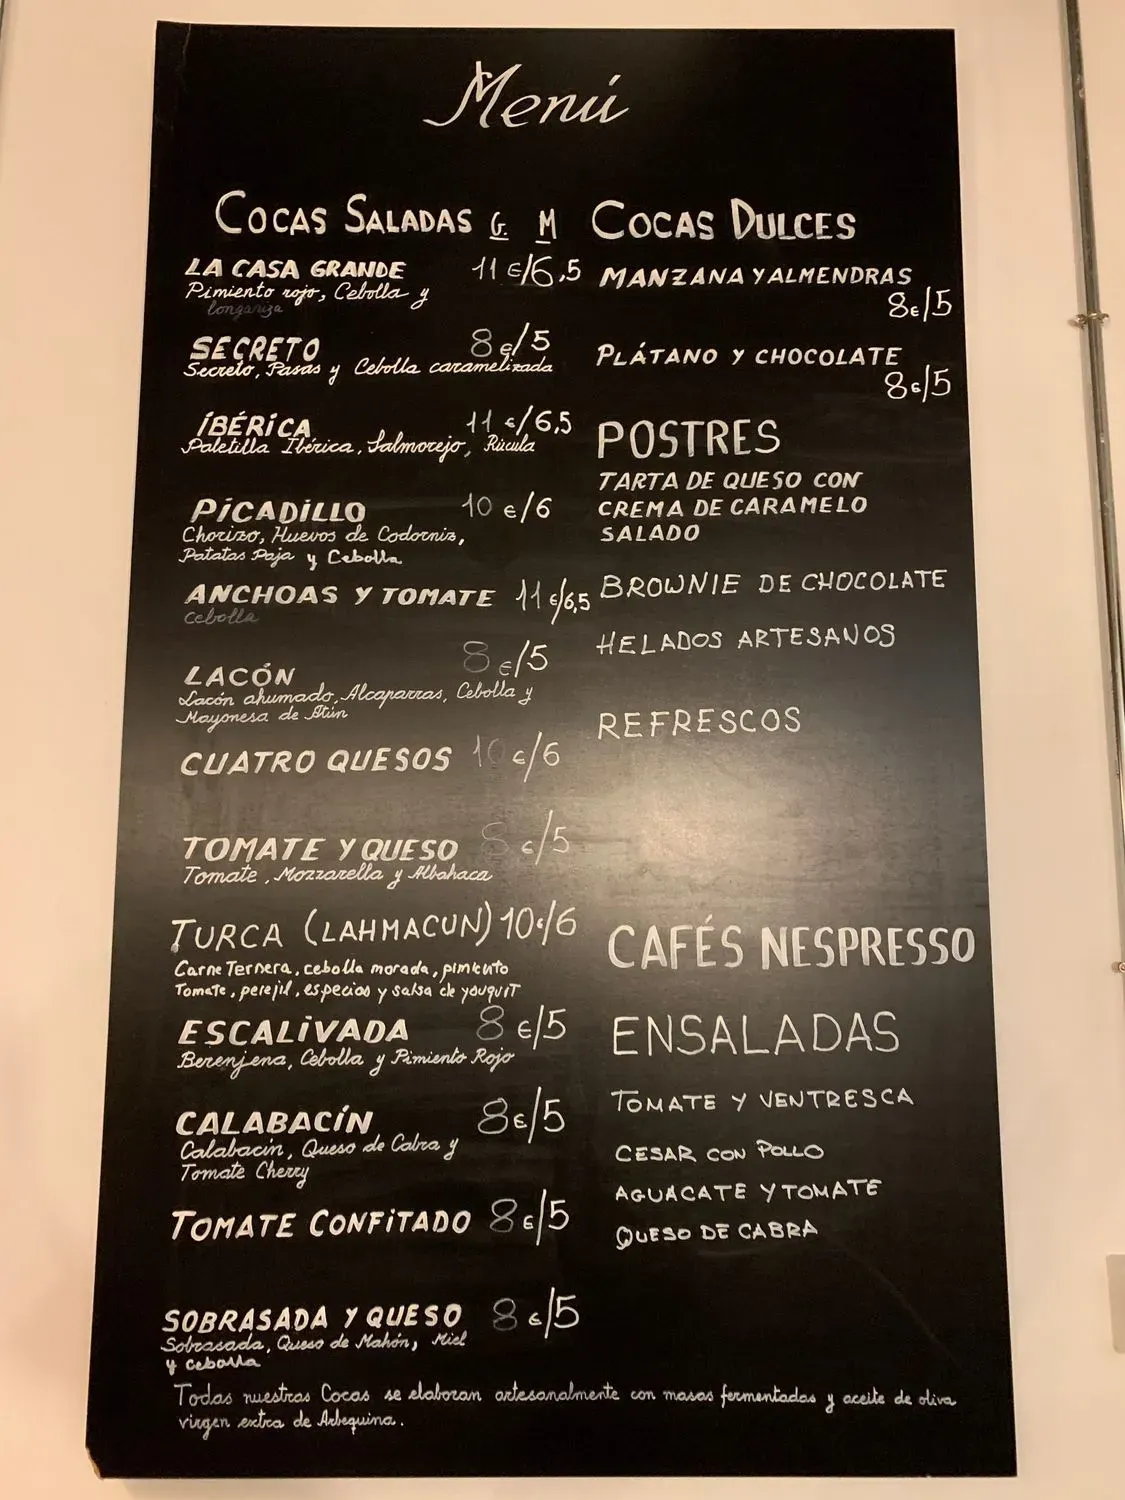 Menú
COCAS SALADAS G. M
LA CASA GRANDE 11 €/6,5
Pimiento rojo, Cebolla y
longaniza
SECRETO 8 €/5
Secreto, Pasas y Cebolla caramelizada
IBÉRICA 11 €/6,5
Paletilla Ibérica, Salmorejo, Rúcula
PICADILLO 10 €/6
Chorizo, Huevos de Codorniz,
Patatas Paja y Cebolla
ANCHOAS Y TOMATE 11 €/6,5
cebolla
LACÓN 8 €/5
Lacón ahumado, Alcaparras, Cebolla y
Mayonesa de Atún
CUATRO QUESOS 10 €/6
TOMATE Y QUESO 8 €/5
Tomate, Mozzarella y Albahaca
TURCA (LAHMACUN) 10€/6
Carne Ternera, cebolla morada, pimiento
Tomate, perejil, especias y salsa de yougurt
ESCALIVADA 8 €/5
Berenjena, Cebolla y Pimiento Rojo
CALABACÍN 8€/5
Calabacín, Queso de Cabra y
Tomate Cherry
TOMATE CONFITADO 8€/5
SOBRASADA Y QUESO 8 €/5
Sobrasada, Queso de Mahón, Miel
y cebolla
COCAS DULCES
MANZANA Y ALMENDRAS
8€/5
PLÁTANO Y CHOCOLATE
8€/5
POSTRES
TARTA DE QUESO CON
CREMA DE CARAMELO
SALADO
BROWNIE DE CHOCOLATE
HELADOS ARTESANOS
REFRESCOS
CAFÉS NESPRESSO
ENSALADAS
TOMATE Y VENTRESCA
CESAR CON POLLO
AGUACATE Y TOMATE
QUESO DE CABRA
Todas nuestras Cocas se elaboran artesanalmente con masas fermentadas y aceite de oliva
virgen extra de Arbequina.